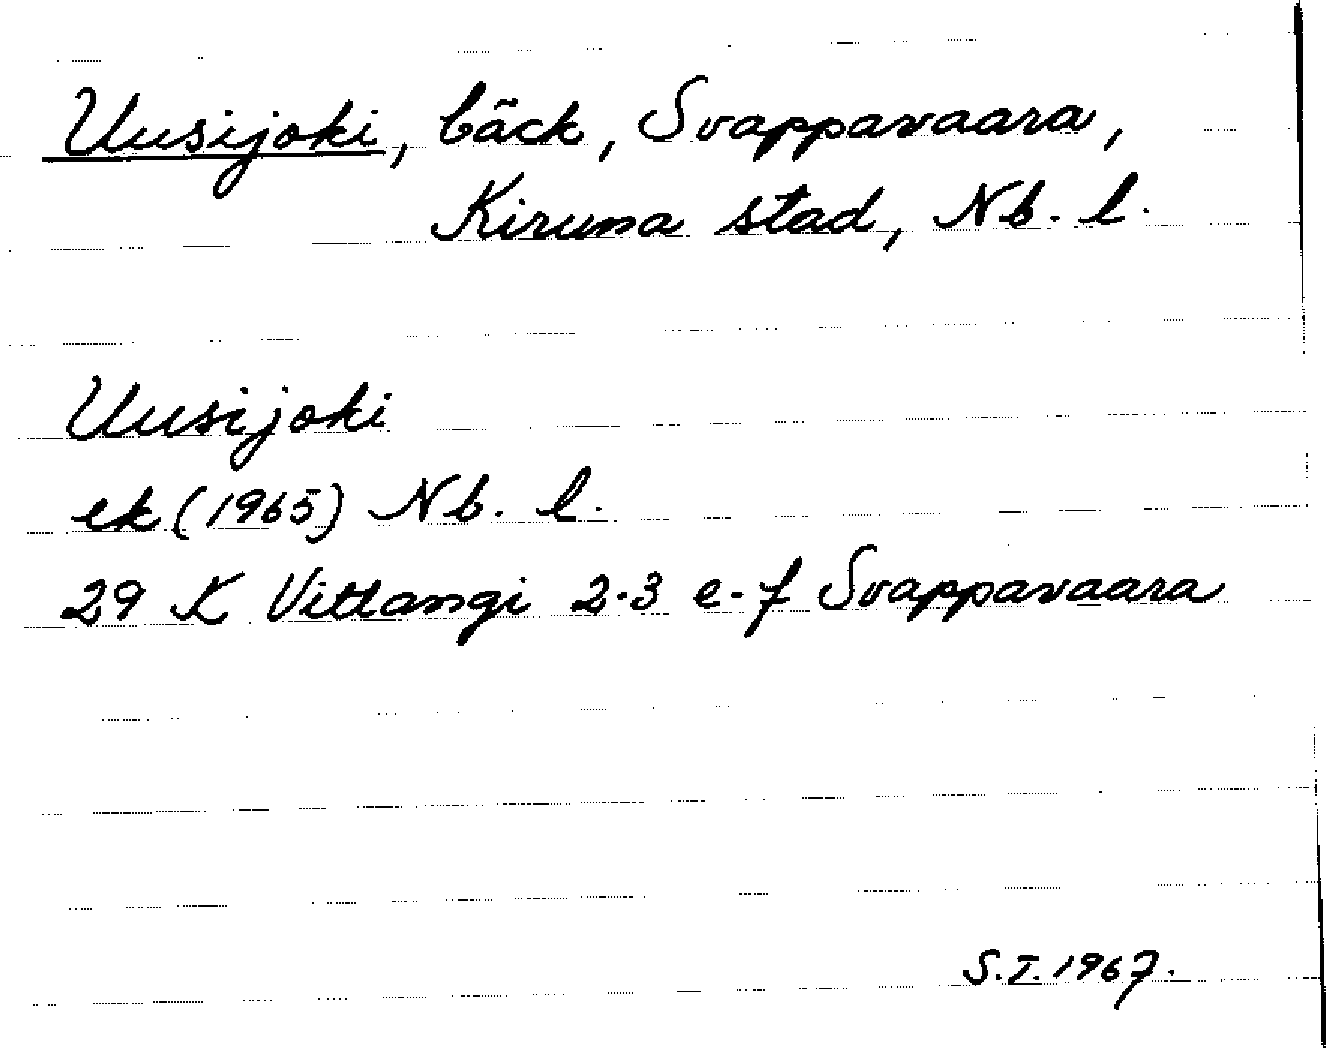 Uusijoki, bäck, Svappavaara,
Kiruna stad, Nb. l.
Uusijoki
ek (1965) Nb. l.
29 K Vittangi 2-3 e-f Svappavaara
S.I. 1967.